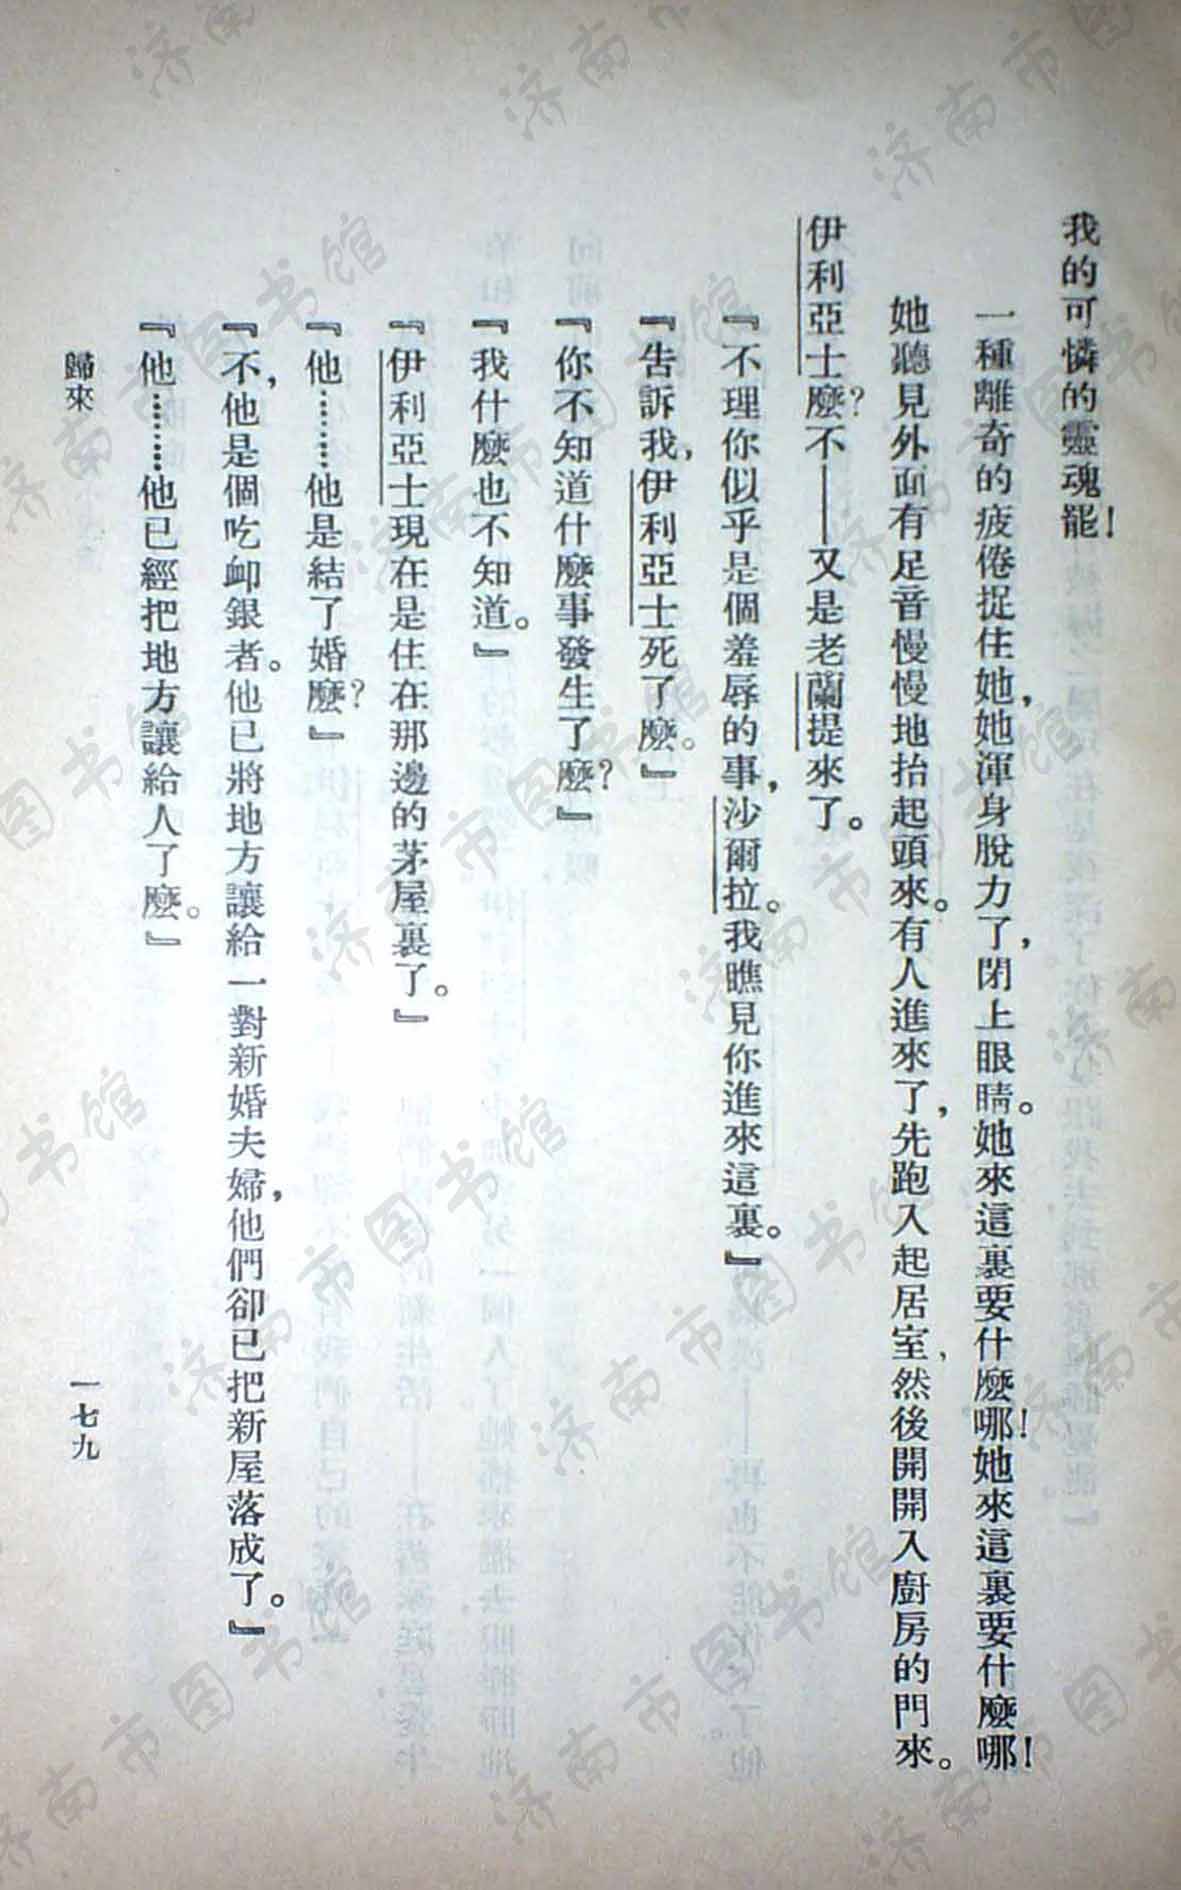 我的可憐的靈魂罷！
一種離奇的疲倦捉住她，她渾身脫力了，閉上眼睛。她來這裏要什麼哪！她來這裏要什麼哪！
她聽見外面有足音慢慢地抬起頭來。有人進來了，先跑入起居室，然後開開入廚房的門來。
伊利亞士麼？不——又是老蘭提來了。
『不理你似乎是個羞辱的事，沙爾拉。我瞧見你進來這裏。』
『告訴我，伊利亞士死了麼。』
『你不知道什麼事發生了麼？』
『我什麼也不知道。』
『伊利亞士現在是住在那邊的茅屋裏了。』
『他………他是結了婚麼？』
『不，他是個吃卹銀者。他已將地方讓給一對新婚夫婦，他們卻已把新屋落成了。』
『他………他已經把地方讓給人了麼。』
歸來
一七九
济南市图书馆